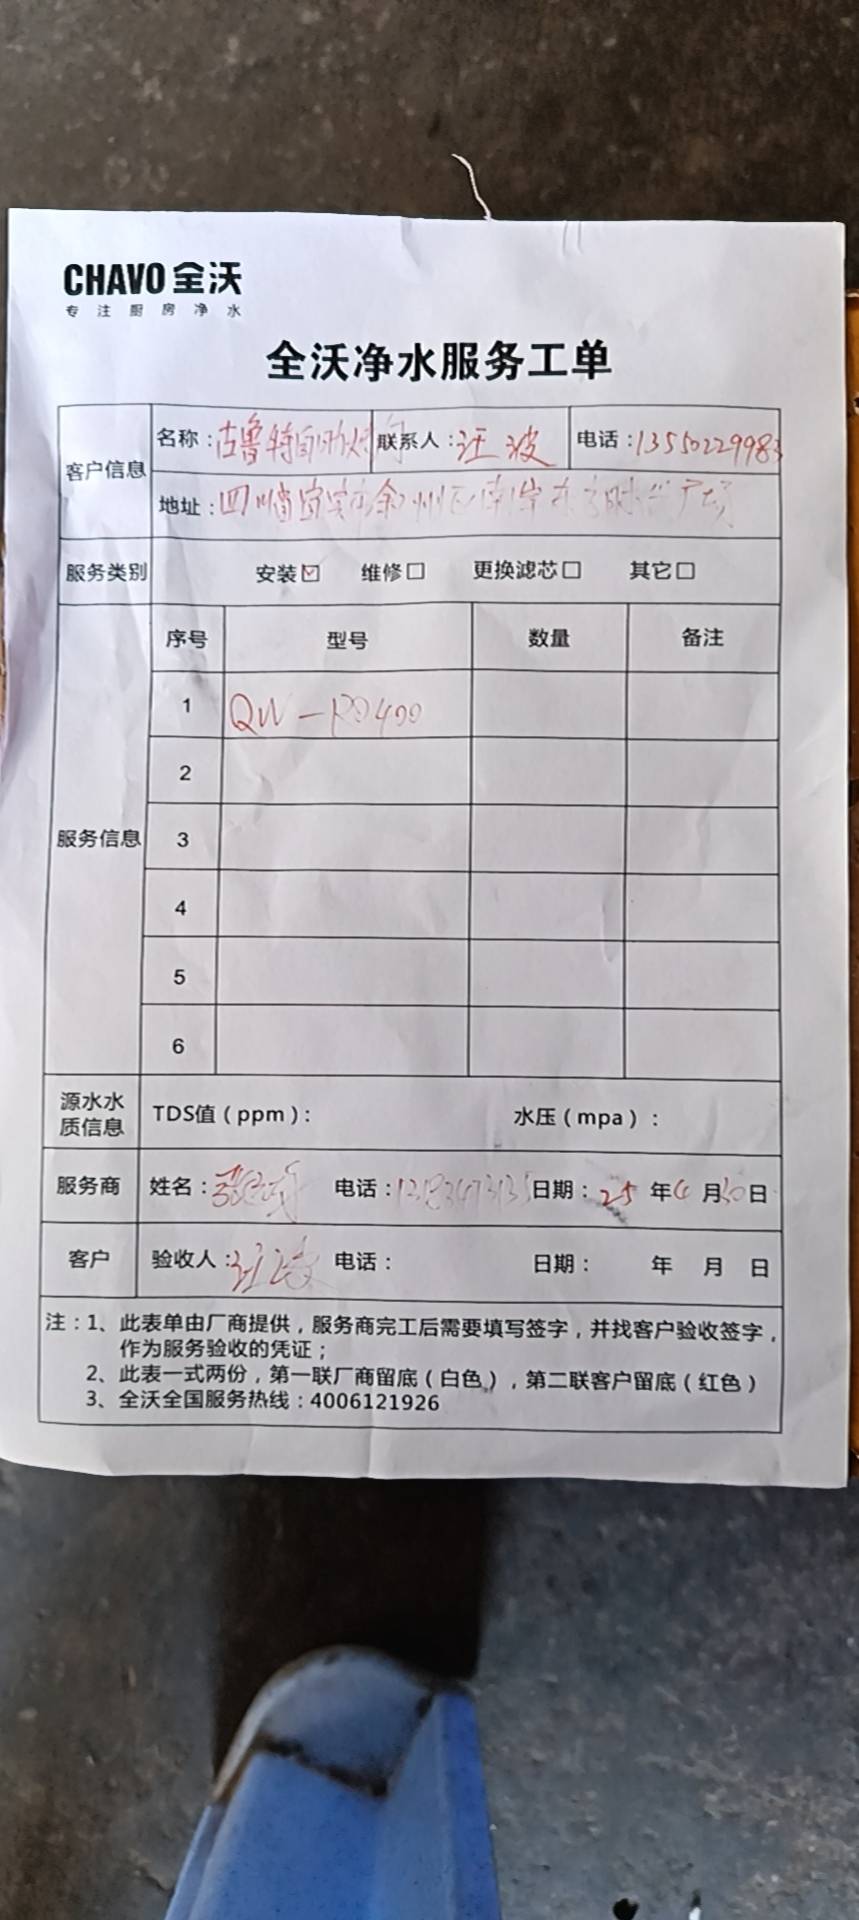 CHAVO 全沃
专注厨房净水
全沃净水服务工单
客户信息 名称：古鲁特自助 联系人：汪波 电话：13550229983
地址：四川省宜宾市 州区南岸 广场
服务类别 安装☑ 维修□ 更换滤芯□ 其它□
服务信息 序号 型号 数量 备注
1 QW-RO400
2
3
4
5
6
源水水质信息 TDS值（ppm）： 水压（mpa）：
服务商 姓名： 电话： 日期：25年4月30日
客户 验收人：汪波 电话： 日期： 年 月 日
注：1、此表单由厂商提供，服务商完工后需要填写签字，并找客户验收签字，
作为服务验收的凭证；
2、此表一式两份，第一联厂商留底（白色），第二联客户留底（红色）
3、全沃全国服务热线：4006121926